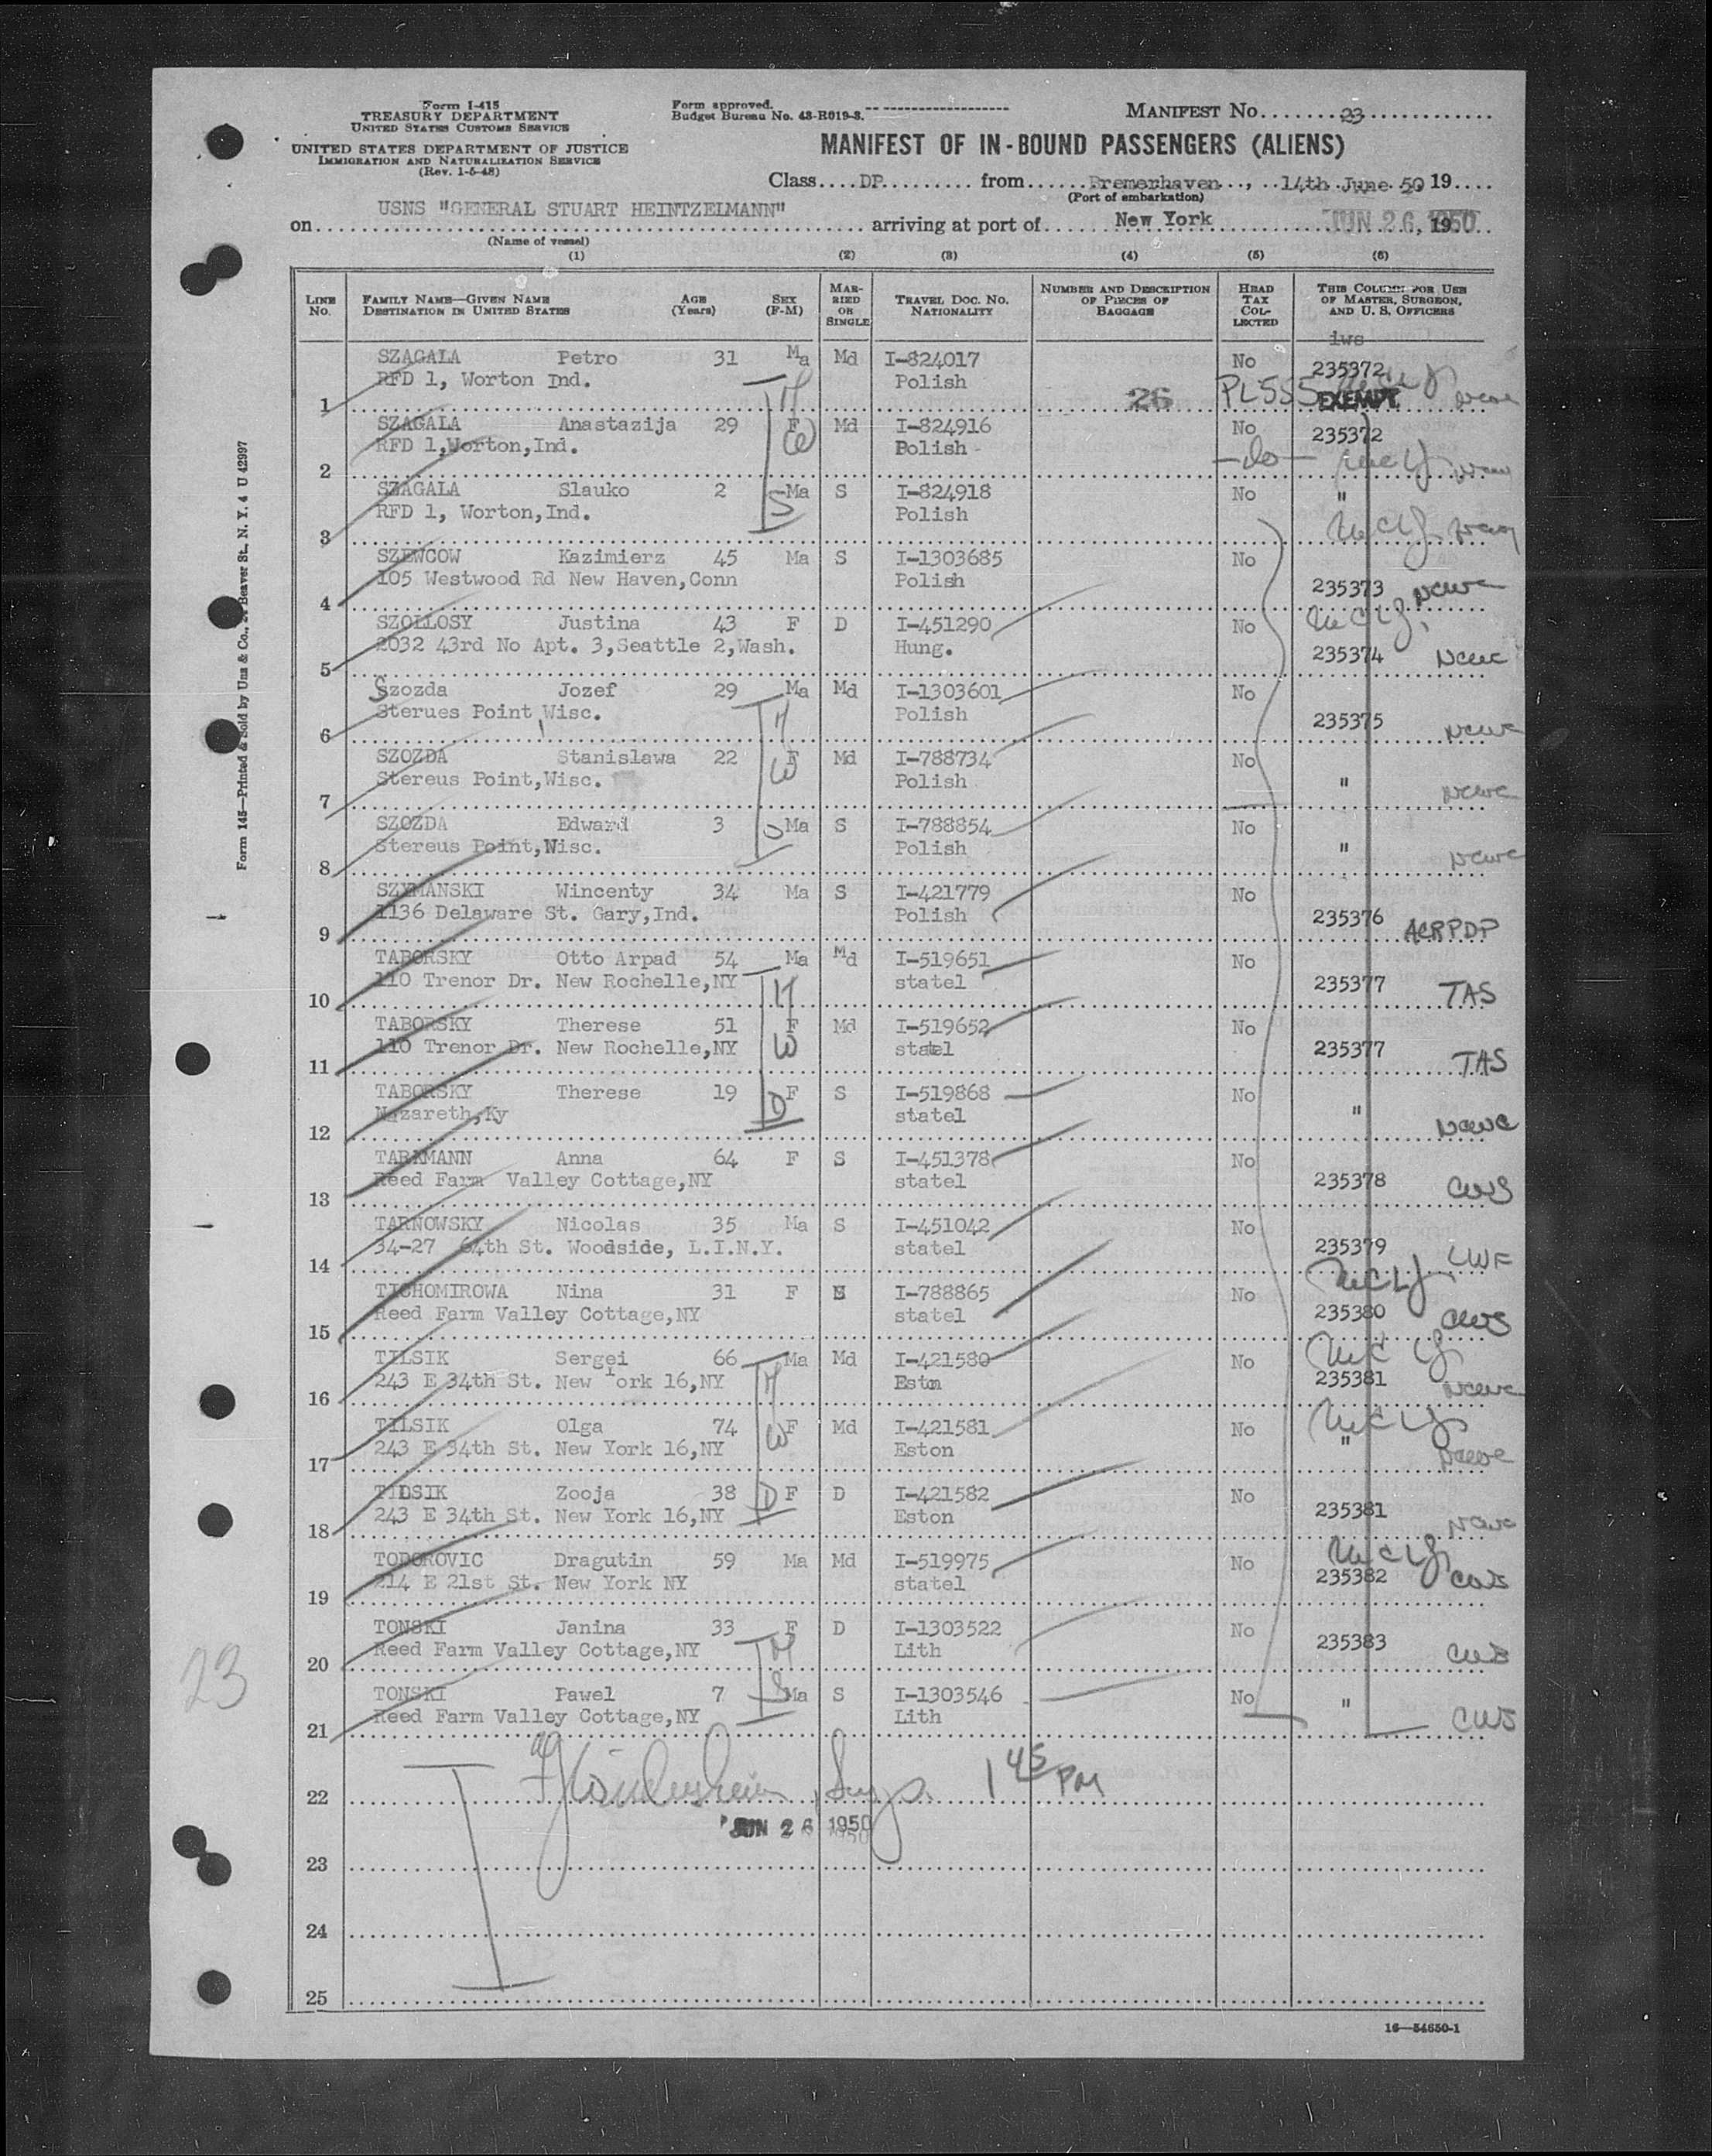 Form I-415
TREASURY DEPARTMENT
UNITED STATES CUSTOMS SERVICE
UNITED STATES DEPARTMENT OF JUSTICE
IMMIGRATION AND NATURALIZATION SERVICE
(Rev. 1-5-48)
Form approved.
Budget Bureau No. 43-R019-3.
MANIFEST No. 23
MANIFEST OF IN-BOUND PASSENGERS (ALIENS)
Class DP from Bremerhaven, 14th June 50 19
(Port of embarkation)
on USNS "GENERAL STUART HEINTZELMANN" arriving at port of New York JUN 26 1950, 19
(Name of vessel)
(1) (2) (3) (4) (5) (6)
LINE No. FAMILY NAME—GIVEN NAME DESTINATION IN UNITED STATES AGE (Years) SEX (F-M) MARRIED OR SINGLE TRAVEL DOC. NO. NATIONALITY NUMBER AND DESCRIPTION OF PIECES OF BAGGAGE HEAD TAX COLLECTED THIS COLUMN FOR USE OF MASTER, SURGEON, AND U. S. OFFICERS
iws
SZAGALA Petro 31 Ma Md I-824017 No 235372
RFD 1, Worton Ind. H Polish
1 26 PL555 EXEMPT ncwc
SZAGALA Anastazija 29 F Md I-824916 No 235372
RFD 1,Worton,Ind. W Polish -do-
2 ncwc
SZAGALA Slauko 2 Ma S I-824918 No "
RFD 1, Worton,Ind. S Polish
3 ncwc
SZEWCOW Kazimierz 45 Ma S I-1303685 No
105 Westwood Rd New Haven,Conn Polish 235373 ncwc
4
SZOLLOSY Justina 43 F D I-451290 No
2032 43rd No Apt. 3,Seattle 2,Wash. Hung. 235374 ncwc
5
Szozda Jozef 29 Ma Md I-1303601 No
Sterues Point,Wisc. H Polish 235375 ncwc
6
SZOZDA Stanislawa 22 F Md I-788734 No
Stereus Point,Wisc. W Polish " ncwc
7
SZOZDA Edward 3 Ma S I-788854 No
Stereus Point,Wisc. Polish " ncwc
8
SZYMANSKI Wincenty 34 Ma S I-421779 No
1136 Delaware St. Gary,Ind. Polish 235376 ACRPDP
9
TABORSKY Otto Arpad 54 Ma Md I-519651 No
110 Trenor Dr. New Rochelle,NY H statel 235377 TAS
10
TABORSKY Therese 51 F Md I-519652 No
110 Trenor Dr. New Rochelle,NY W statel 235377 TAS
11
TABORSKY Therese 19 F S I-519868 No
Nazareth,Ky D statel " ncwc
12
TARKMANN Anna 64 F S I-451378 No
Reed Farm Valley Cottage,NY statel 235378 CWS
13
TARNOWSKY Nicolas 35 Ma S I-451042 No
34-27 64th St. Woodside, L.I.N.Y. statel 235379 LWF
14
TICHOMIROWA Nina 31 F S I-788865 No
Reed Farm Valley Cottage,NY statel 235380 CWS
15
TILSIK Sergei 66 Ma Md I-421580 No
243 E 34th St. New York 16,NY H Eston 235381 ncwc
16
TILSIK Olga 74 F Md I-421581 No
243 E 34th St. New York 16,NY W Eston " ncwc
17
TILSIK Zooja 38 D F D I-421582 No
243 E 34th St. New York 16,NY Eston 235381 ncwc
18
TODOROVIC Dragutin 59 Ma Md I-519975 No
214 E 21st St. New York NY statel 235382 CWS
19
TONSKI Janina 33 F D I-1303522 No
Reed Farm Valley Cottage,NY M Lith 235383 CWS
20
TONSKI Pawel 7 S Ma S I-1303546 No "
Reed Farm Valley Cottage,NY Lith CWS
21
22 1 45 PM
JUN 26 1950
23
24
25
16—54650-1
23